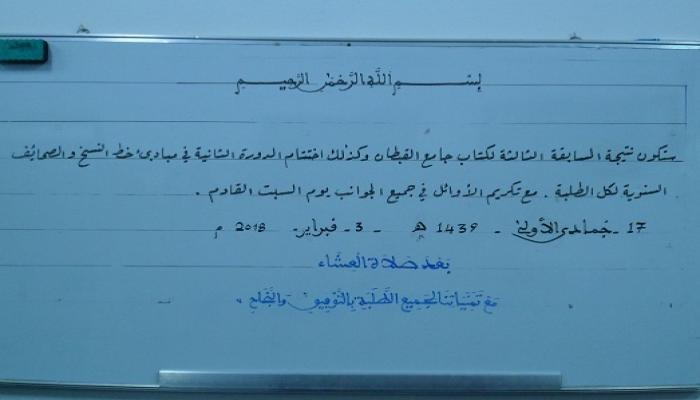 بسم الله الرحمن الرحيم
ستكون نتيجة المسابقة الثالثة لكتاب جامع القبطان وكذلك اختتام الدورة الثانية في مبادئ خط النسخ والصحائف
السنوية لكل الطلبة . مع تكريم الأوائل في جميع الجوانب يوم السبت القادم .
17 - جمادى الأولى - 1439 هـ - 3 - فبراير - 2018 م
بعد صلاة العشاء
مع تمنياتنا لجميع الطلبة بالتوفيق والنجاح .